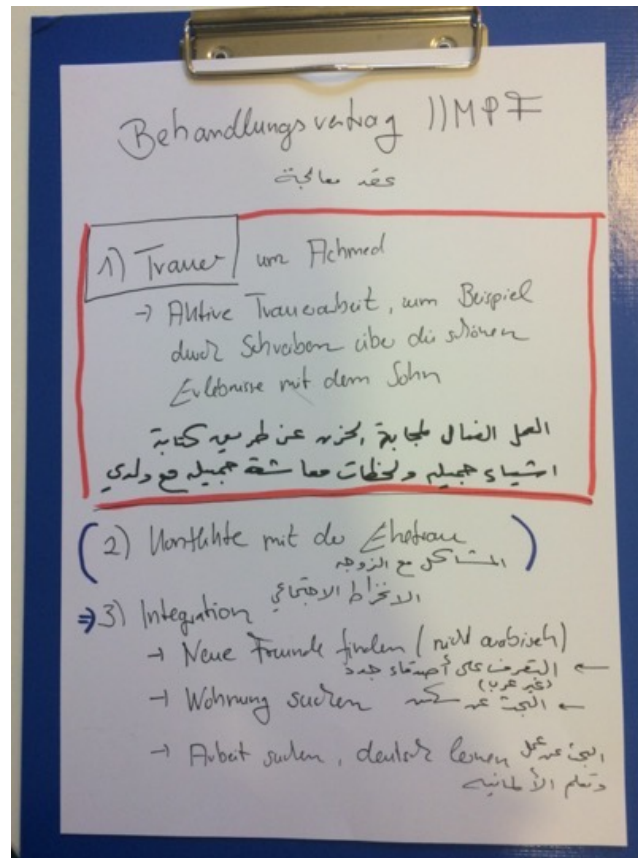 Behandlungsvertrag IIMPF
عقد معالجة
1) Trauer um Achmed
→ Aktive Trauerarbeit, zum Beispiel
durch Schreiben über die schönen
Erlebnisse mit dem Sohn
العمل الفعال لمجابهة الحزن عن طريق كتابة
اشياء جميله ولحظات معاشة جميله مع ولدي
(2) Konflikte mit der Ehefrau)
المشاكل مع الزوجه
الانخراط الاجتماعي
⇒ 3) Integration
→ Neue Freunde finden (nicht arabisch)
← التعرف على أصدقاء جدد
(غير عرب)
→ Wohnung suchen البحث عن سكن ←
→ Arbeit suchen, deutsch lernen البحث عن عمل
وتعلم الألمانيه